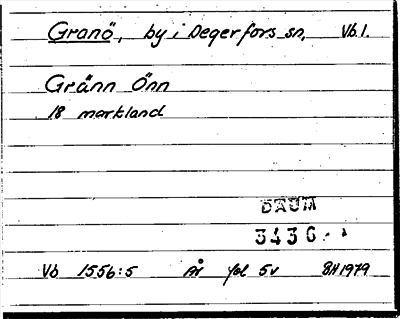 Granö, by i Degerfors sn, Vb l.
Gränn Önn
18 markland
DAUM
3436
Vb 1556:5 År fol 5v BH 1979